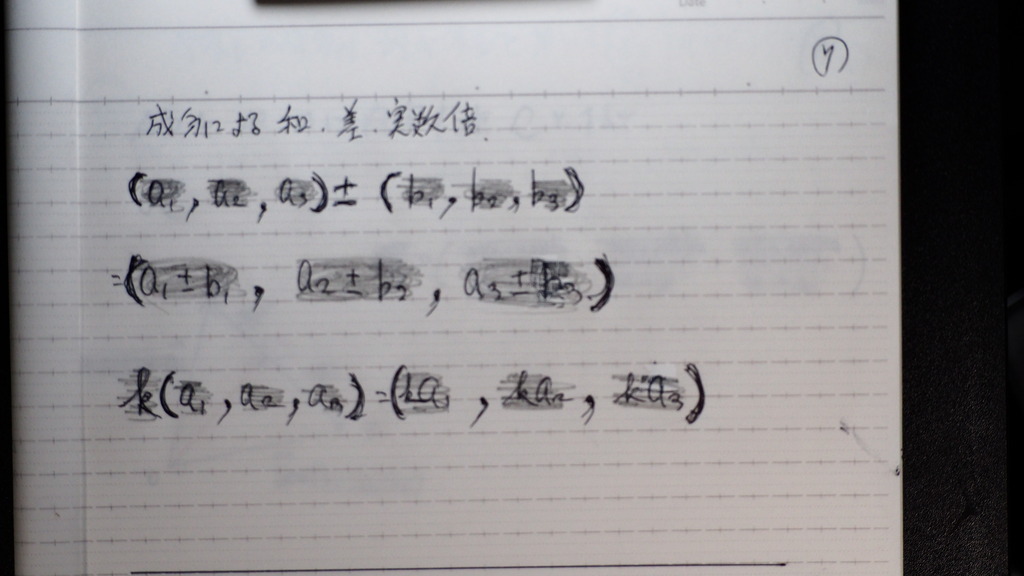 Date
(7)
成分による和.差.実数倍
(a₁, a₂, a₃) ± (b₁, b₂, b₃)
=(a₁±b₁, a₂±b₂, a₃±b₃)
k(a₁, a₂, a₃)=(ka₁, ka₂, ka₃)